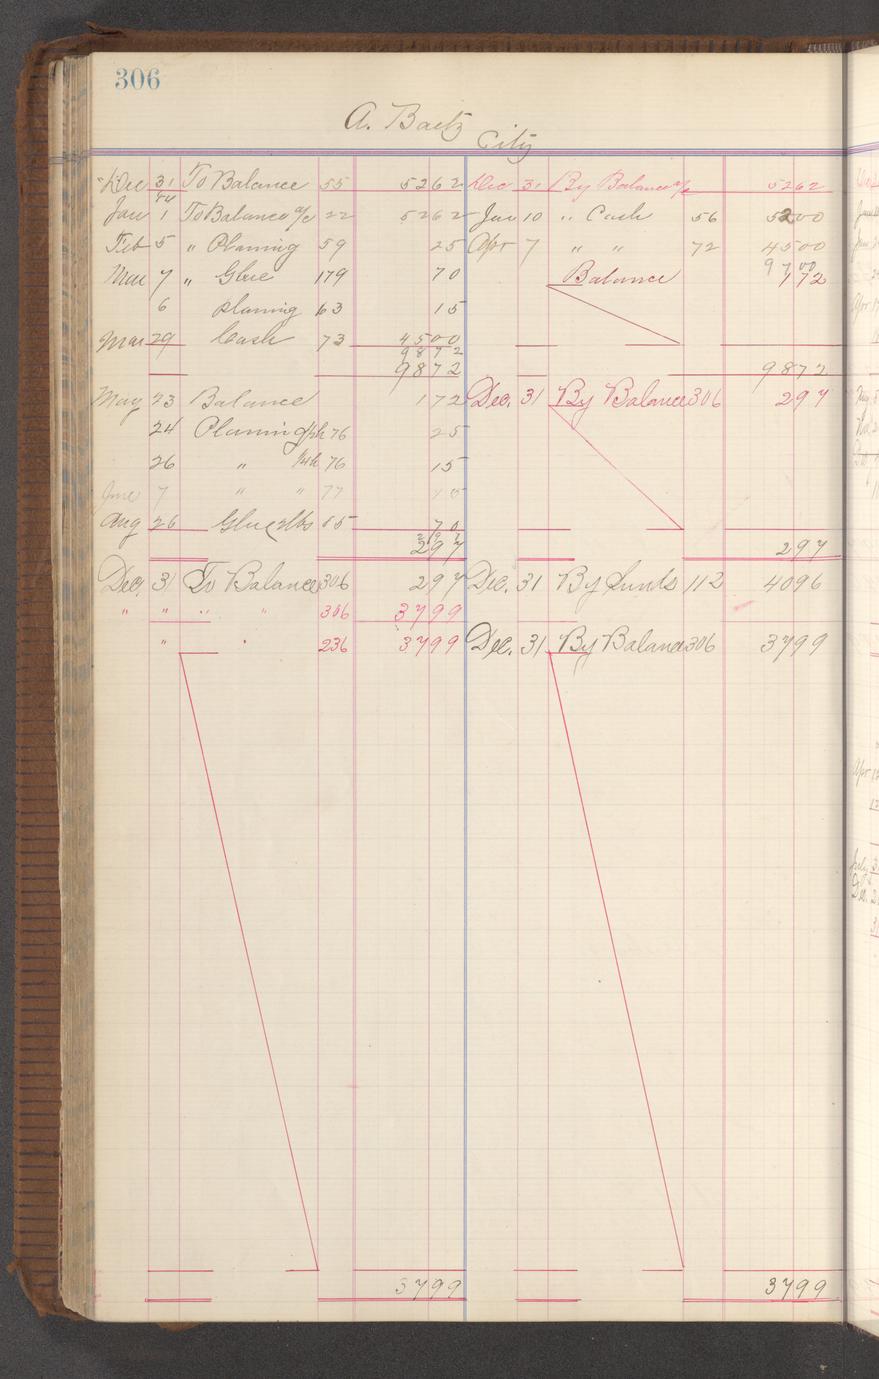 306
A. Baetz
City
Dec 31 To Balance 55 5262 Dec 31 By Balance a/c 5262
94
Jan 1 To Balance a/c 22 5262 Jan 10 " Cash 56 5200
Feb 5 " Planing 59 25 Apr 7 " " 72 4500
9700
Mar 7 " Glue 179 70 Balance 172
6 Planing 63 15
Mar 29 Cash 73 4500
9872
9872 9872
May 23 Balance 172 Dec. 31 By Balance 306 297
24 Planing 76 25
26 " 76 15
June 7 " " 77 15
Aug 26 Glue 2lbs 85 70
297
297 297
Dec. 31 To Balance 306 297 Dec. 31 By Sunds 112 4096
" " " " 306 3799
" " 236 3799 Dec. 31 By Balance 306 3799
3799 3799